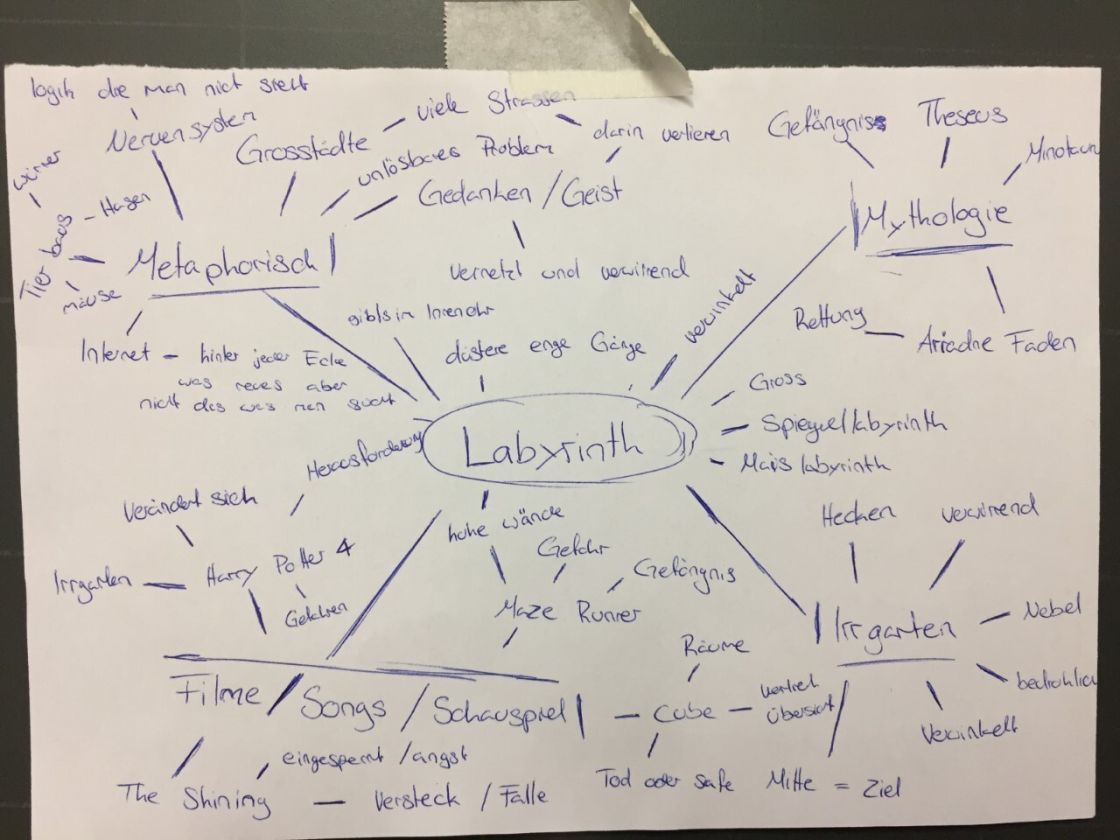 logik die man nict sieht
Nervensystem
Grosstädte
viele Strassen
darin verlieren
unlösbares Problem
Gedanken / Geist
vernetzt und verwirrend
würmer
Tier baus - Hasen
mäuse
Metaphorisch
Internet - hinter jeder Ecke
was neues aber
nicht das was man sucht
gibts im Innenohr
düstere enge Gänge
verwinkelt
Gefängniss
Theseus
Minotaur
Mythologie
Rettung
Ariadne Faden
Gross
Spiegellabyrinth
Maislabyrinth
Labyrinth
Herausforderung
Verändert sich
Irrgarten
Harry Potter 4
Gefahren
hohe wände
Gefahr
Gefängnis
Maze Runner
Hecken
verwirrend
Irrgarten
Nebel
bedrohlich
Verwinkelt
Mitte = Ziel
Räume
Cube
verliert
Übersicht
Tod oder safe
Filme / Songs / Schauspiel
eingesperrt / angst
The Shining
Versteck / Falle